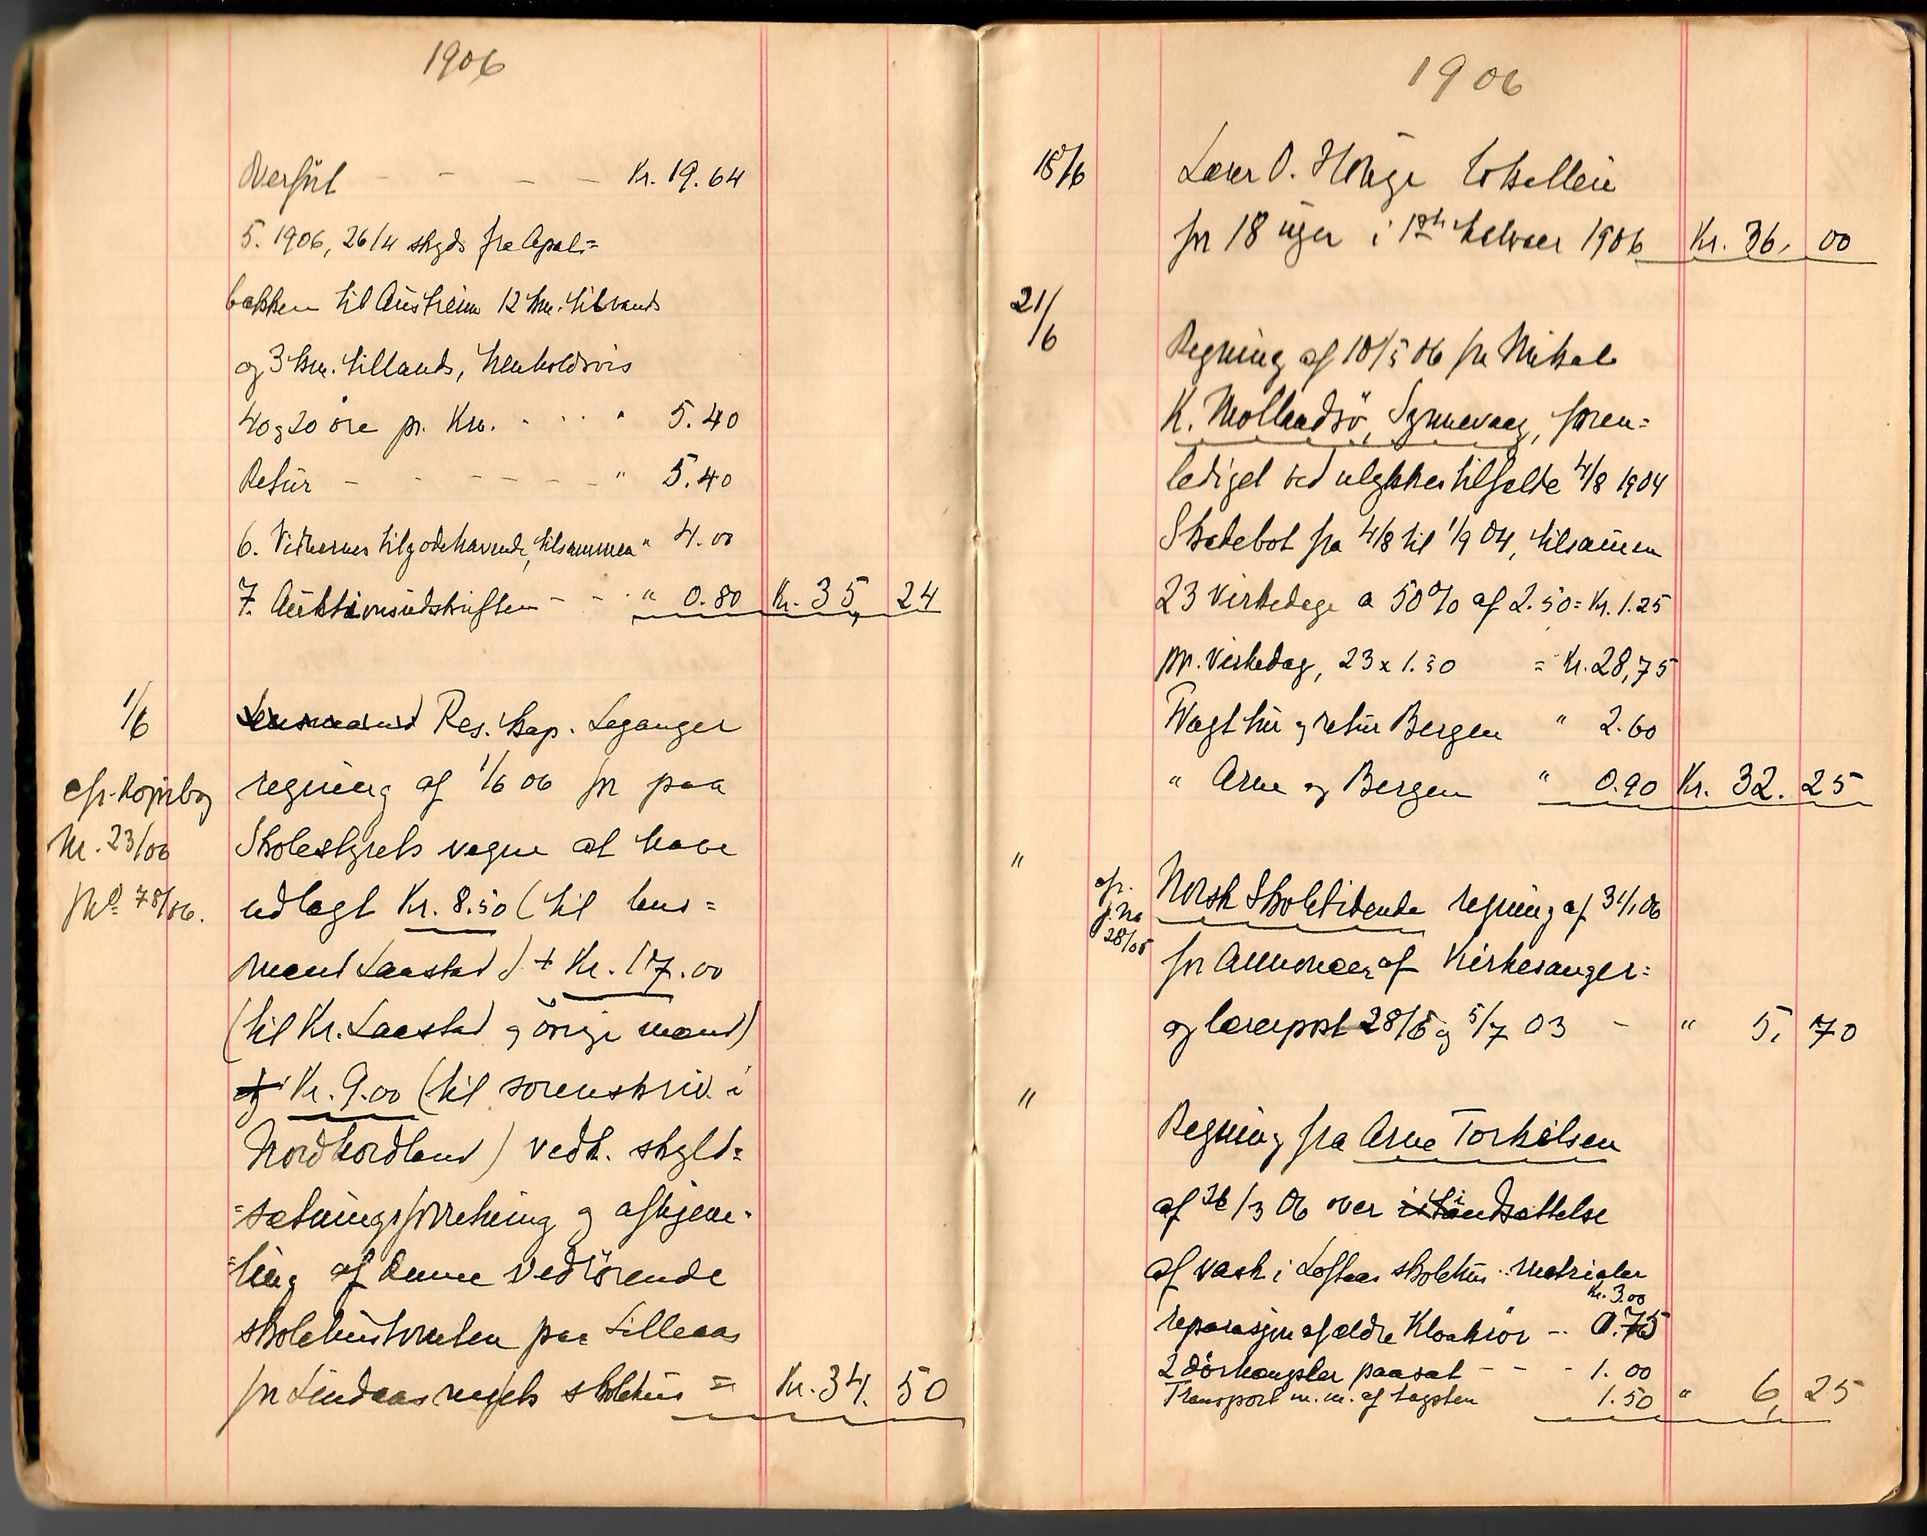 1906
Overført - - - - Kr. 19.64
5. 1906, 26/4 skyds fra Apal=
bakken til Austreim 12 km. tilvands
og 3 km. tillands, henholdsvis
40 og 20 øre pr. Km. . . . " 5.40
Retur - - - - - - " 5.40
6. Vidnernes tilgodehavende, tilsammen " 4.00
7. Auktionsudskriften - - . " 0.80 Kr. 35, 24
1/6 Lensmand Res. kap. Leganger
cfr. Kopibog regning af 1/6 06 for paa
Nr. 23/06 Skolestyrets vegne at have
78/06. udlagt Kr. 8.50 (til lens=
mand Laastad) + Kr. 17.00
(til Kr. Laastad og øvrige mænd)
og Kr. 9.00 (til sorenskriv. i
Nordhordland) vedk. skyld=
=sætningsforretning og afhjem-
=ling af denne vedrørende
skolehustomten paa Lilleaas
for Lindaas skolehus = Kr. 34. 50
1906
18/6 Lærer O. Hönge
for 18 uger i 1ste halvaar 1906 Kr. 36, 00
21/6
Regning af 10/5 06 fra Mikal
K. Mollandsö, Synnevaag, foran=
lediget ved ulykkestilfelde 4/8 1904
Skadebot fra 4/8 til 1/9 04, tilsamen
23 virkedage a 50% af 2.50 = Kr. 1.25
pr. virkedag, 23 x 1.50 = Kr. 28,75
Fragt tur og retur Bergen " 2.60
" Arne og Bergen " 0.90 Kr. 32. 25
"
cfr. Norsk Skoletidende regning af 31/1 06
j. No
28/05
for Annoncer af Kirkesanger=
og lærerpost 28/6 og 5/7 03 - " 5, 70
"
Regning fra Arne Torkelsen
af 26/3 06 over istandsættelse
af vask i Loftaas skolehus. Matrialer
Kr. 3.00
reparasjon af ældre Kloakrör -. 0.75
2 dörhængsler paasat - - - 1.00
Transport m. m. af tagsten 1.50 " 6, 25